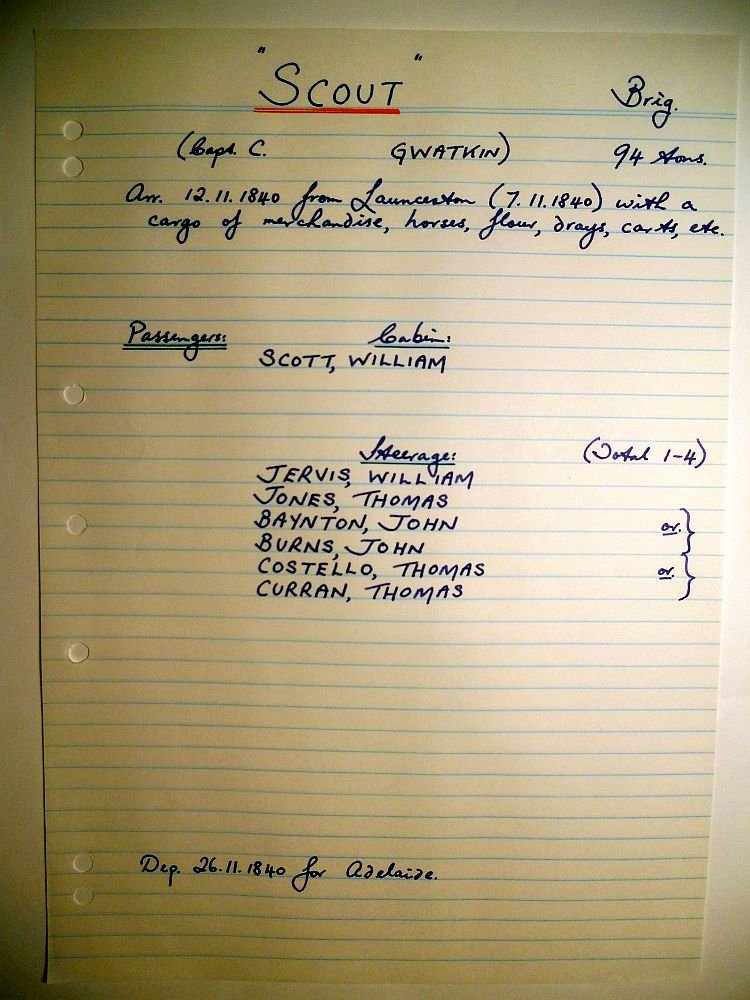 "SCOUT" Brig.
(Capt. C. GWATKIN) 94 tons.
Arr. 12.11.1840 from Launceston (7.11.1840) with a
cargo of merchandise, horses, flour, drays, carts, etc.
Passengers: Cabin:
SCOTT, WILLIAM
Steerage: (Total 1-4)
JERVIS, WILLIAM
JONES, THOMAS
BAYNTON, JOHN or. }
BURNS, JOHN
COSTELLO, THOMAS or. }
CURRAN, THOMAS
Dep. 26.11.1840 for Adelaide.